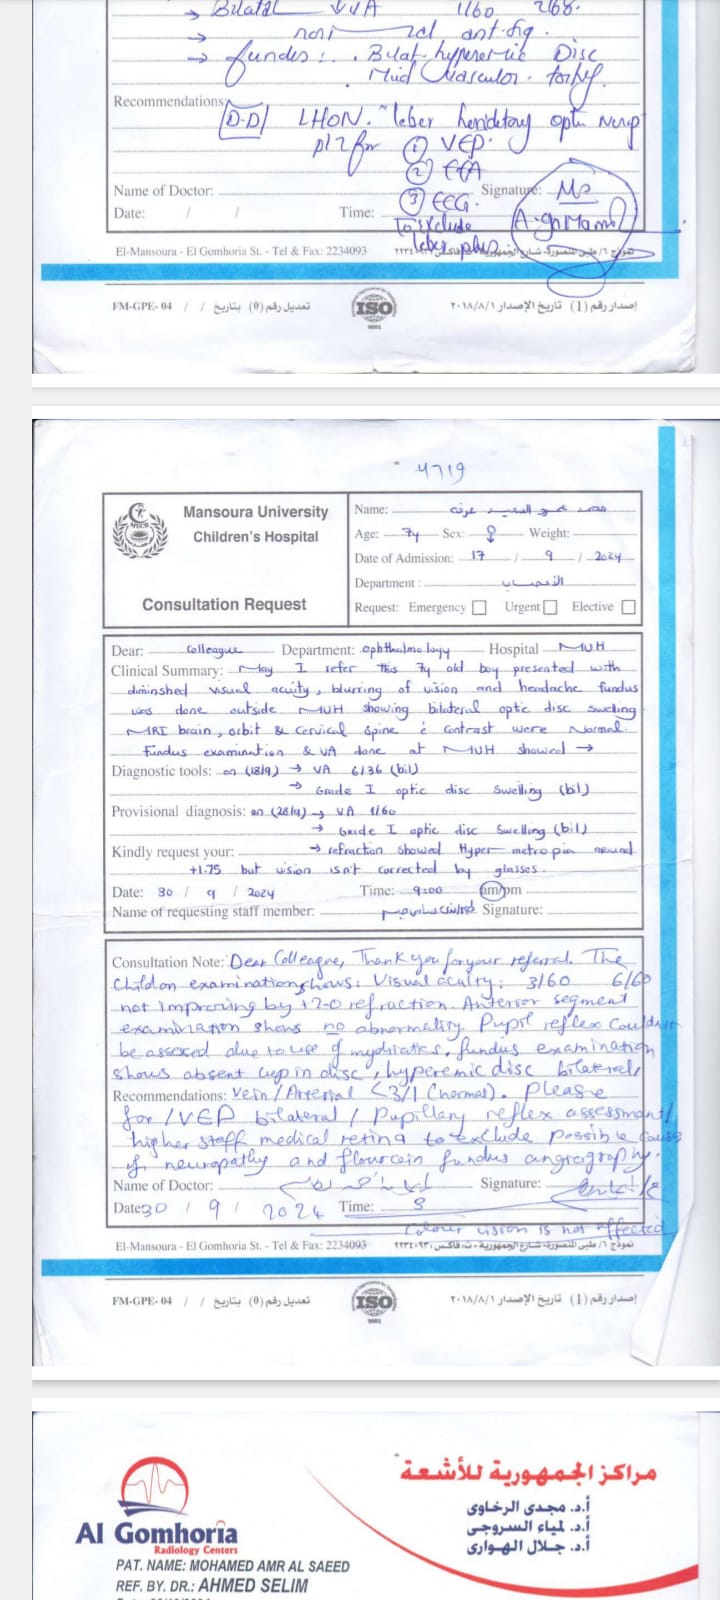 → Bilatal VVA 1/60
→ ant.
→ fundus: . Bilat. hyperemic Disc
. Mild Vascular.
Recommendations:
D.D LHON. "leber heridetary optic
plz for ① VEP.
②
Name of Doctor: Signature:
③ EEG.
Date: / / Time:
To exclude
leber plus
El-Mansoura - El Gomhoria St. - Tel & Fax: 2234093
FM-GPE- 04 / / تعديل رقم (0) بتاريخ
ISO
9001
إصدار رقم (1) تاريخ الإصدار ٢٠١٨/٨/١
Mansoura University
Children's Hospital
Consultation Request
Name: عمرو السعيد
Age: 7y Sex: Weight:
Date of Admission: 17 / 9 / 2024
Department: الأعصاب
Request: Emergency Urgent Elective
Dear: Colleague Department: ophthalmology Hospital MUH
Clinical Summary: May I refer this 7y old boy presented with
diminshed visual acuity, blurring of vision and headache fundus
was done outside MUH showing bilateral optic disc swelling
MRI brain, orbit & cervical spine c̄ contrast were Normal.
Fundus examination & VA done at MUH showed →
Diagnostic tools: on (18/9) → VA 6/36 (bil)
→ Grade I optic disc swelling (bil)
Provisional diagnosis: on (28/9) → VA 1/60
→ Grade I optic disc swelling (bil)
Kindly request your: → refraction showed Hypermetropia around
+1.75 but vision isn't corrected by glasses.
Date: 30 / 9 / 2024 Time: 9:00 am/pm
Name of requesting staff member: Signature:
Consultation Note: Dear Colleague, Thank you for your referral. The
Child on examination shows: Visual acuity: 3/60 6/60
not improving by +2.0 refraction. Anterior segment
examination shows no abnormality. Pupil reflex couldn't
be assessed due to use of mydriatics, fundus examination
shows absent cup in disc, hyperemic disc bilateral,
Recommendations: Vein / Arterial <3/1 (normal). Please
for / VEP bilateral / Pupillary reflex assessment /
higher staff medical retina to exclude possible cause
of neuropathy and flourcein fundus angiography.
Name of Doctor: Signature:
Date: 30 / 9 / 2024 Time:
Colour vision is not affected
El-Mansoura - El Gomhoria St. - Tel & Fax: 2234093
FM-GPE- 04 / / تعديل رقم (0) بتاريخ
ISO
9001
إصدار رقم (1) تاريخ الإصدار ٢٠١٨/٨/١
مراكز الجمهورية للأشعة
أ.د. مجدى الرخاوى
أ.د. لمياء السروجى
أ.د. جلال الهوارى
Al Gomhoria
Radiology Centers
PAT. NAME: MOHAMED AMR AL SAEED
REF. BY. DR.: AHMED SELIM